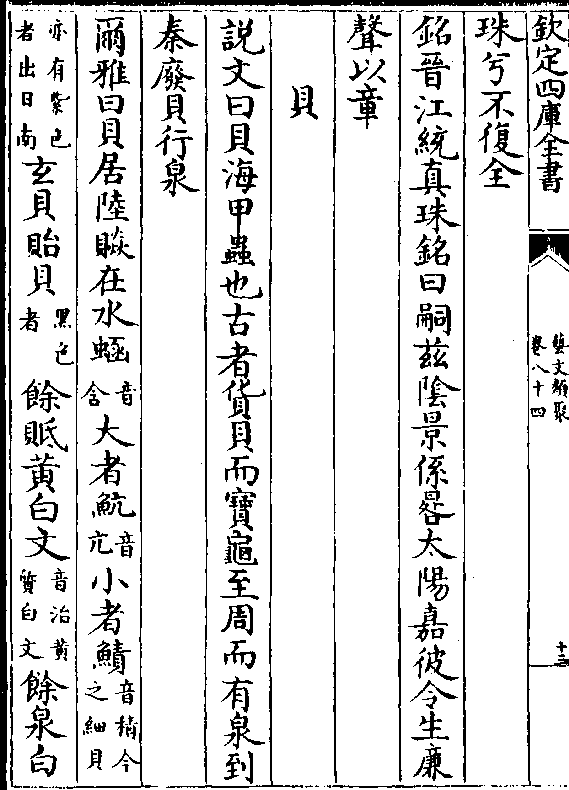 欽定四庫全書
藝文類聚
卷八十四
十三
珠兮不復全
銘晉江統真珠銘曰嗣茲陰景係晷太陽嘉彼令生廉
聲以章
貝
說文曰貝海甲蟲也古者貨貝而寶龜至周而有泉到
秦廢貝行泉
爾雅曰貝居陸贆在水蝸音含大者魧音亢小者鰿音積今之細貝
亦有紫色者出日南玄貝貽貝黑色者餘貾黃白文音治黃質白文餘泉白